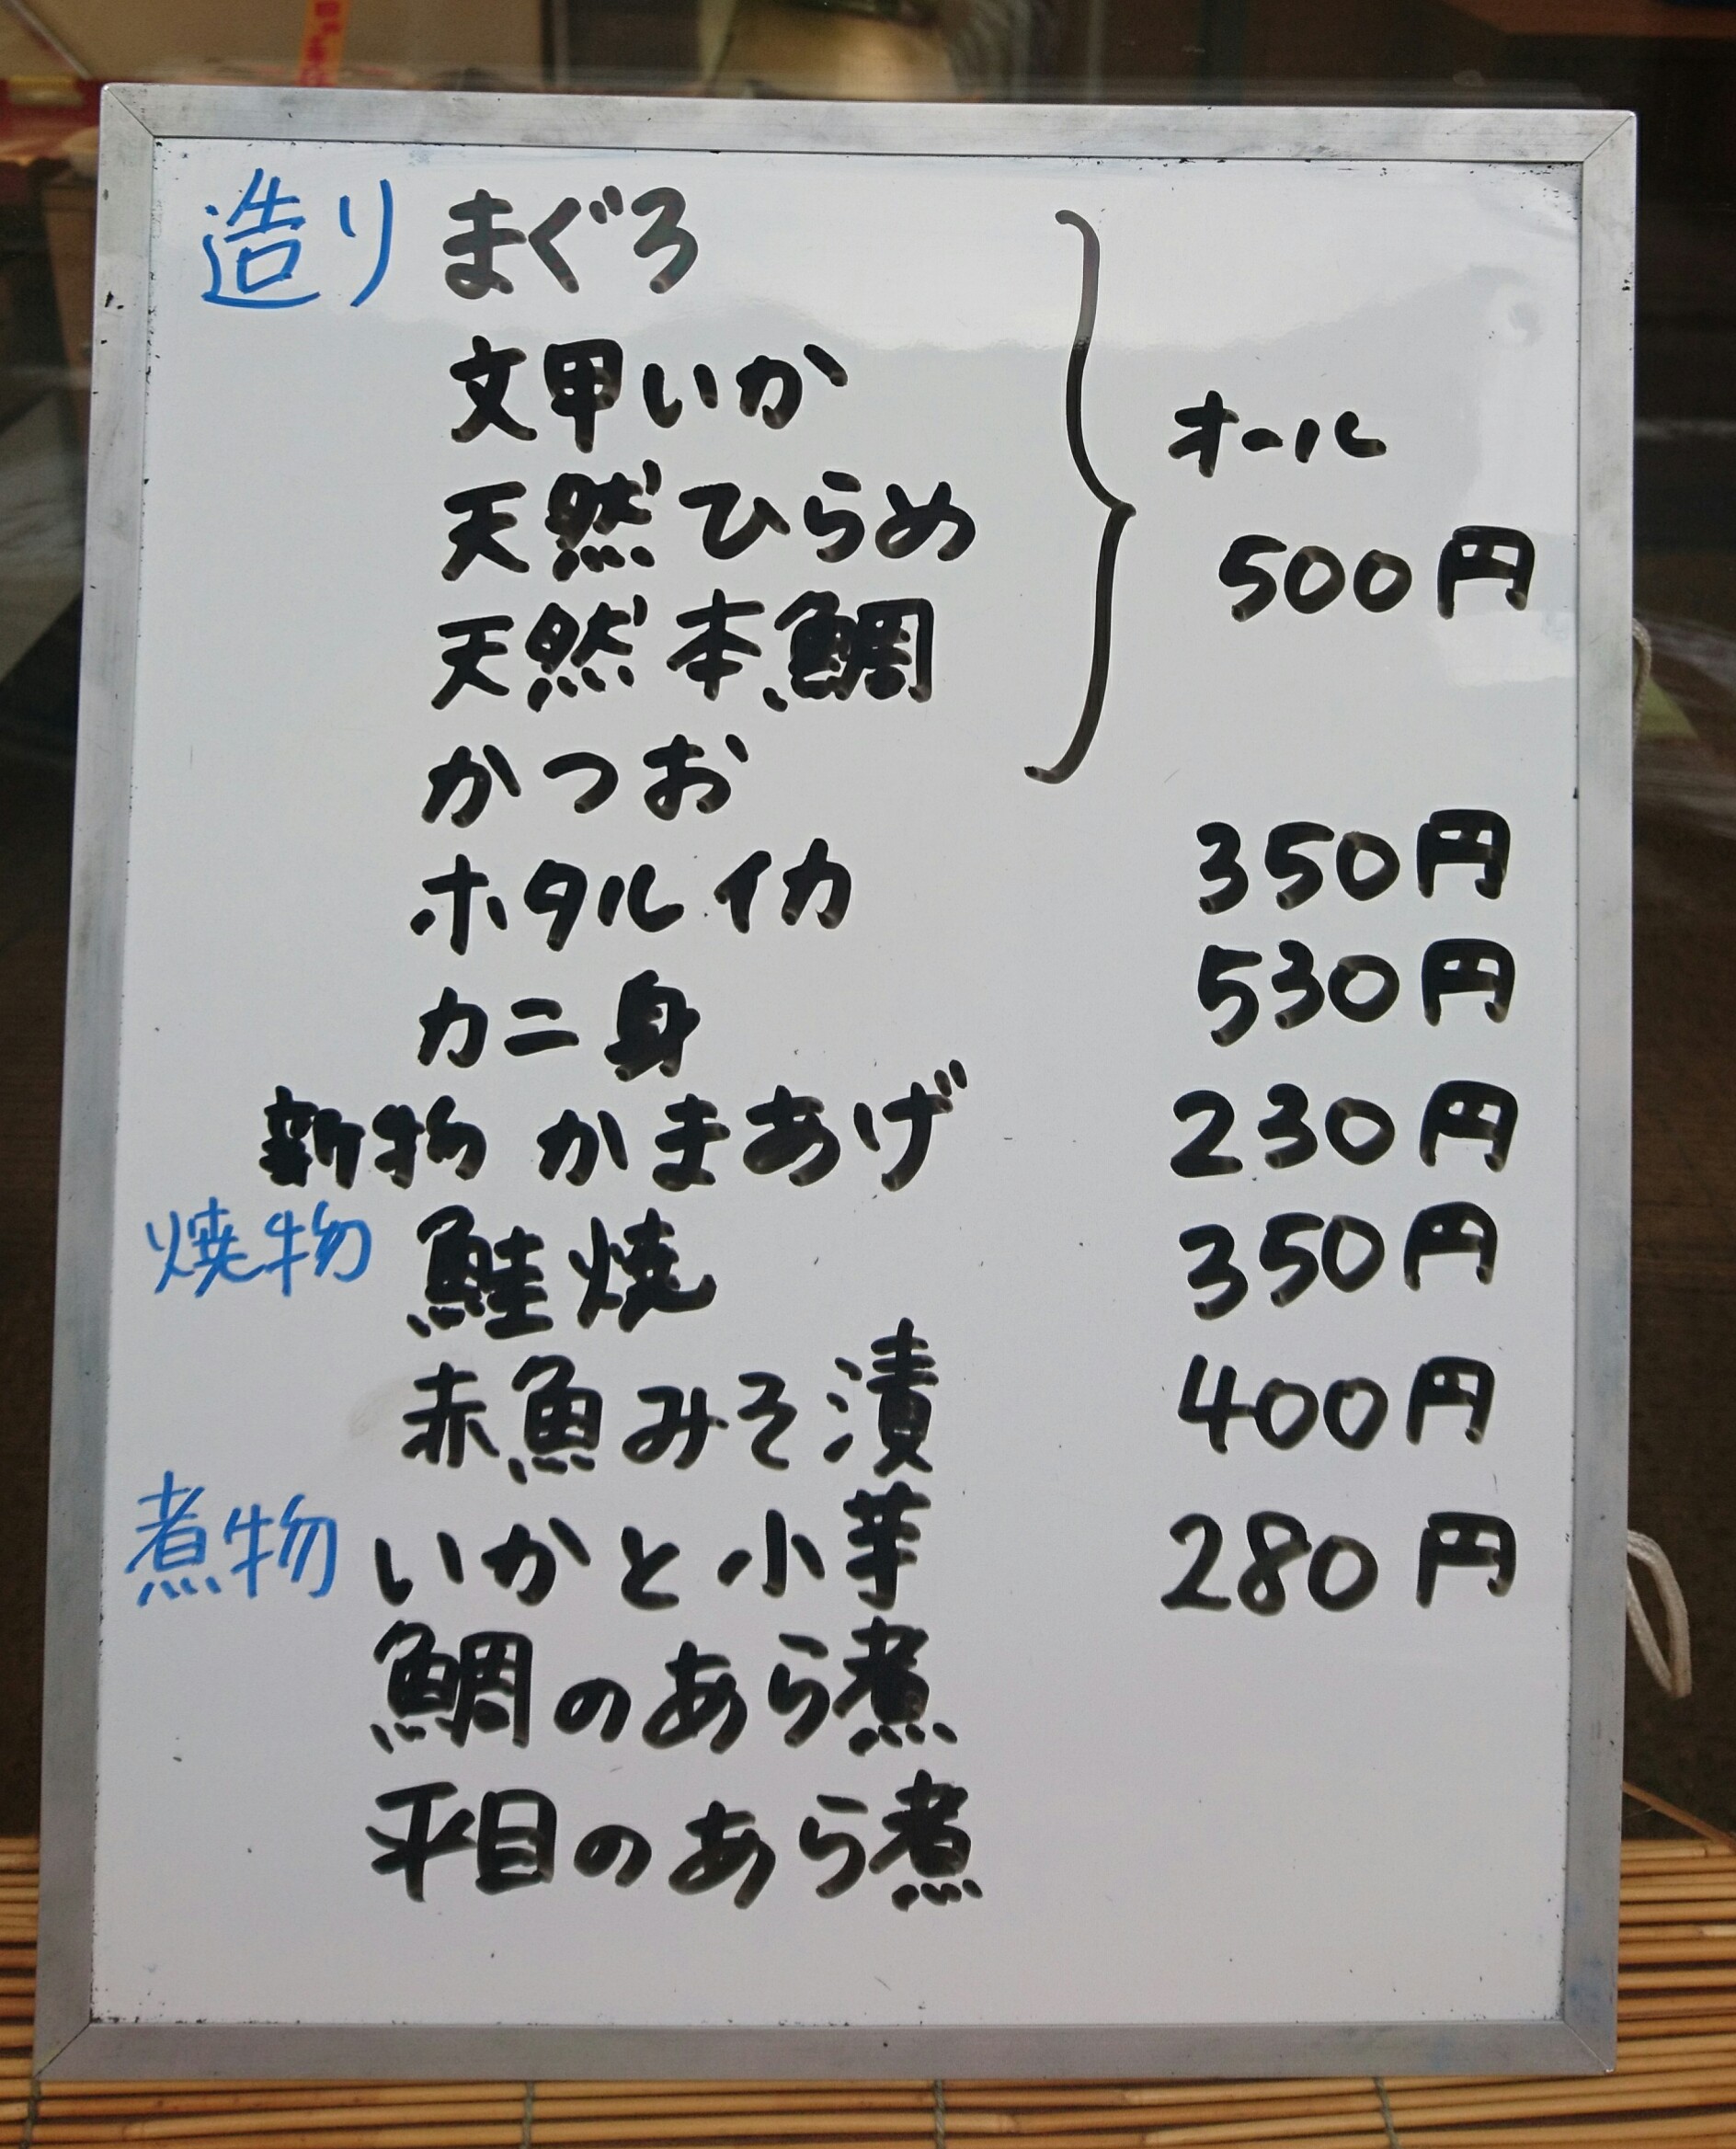 造り まぐろ
文甲いか
天然ひらめ
天然本鯛
かつお
オール
500円
ホタルイカ 350円
カニ身 530円
新物 かまあげ 230円
焼物 鮭焼 350円
赤魚みそ漬 400円
煮物 いかと小芋 280円
鯛のあら煮
平目のあら煮